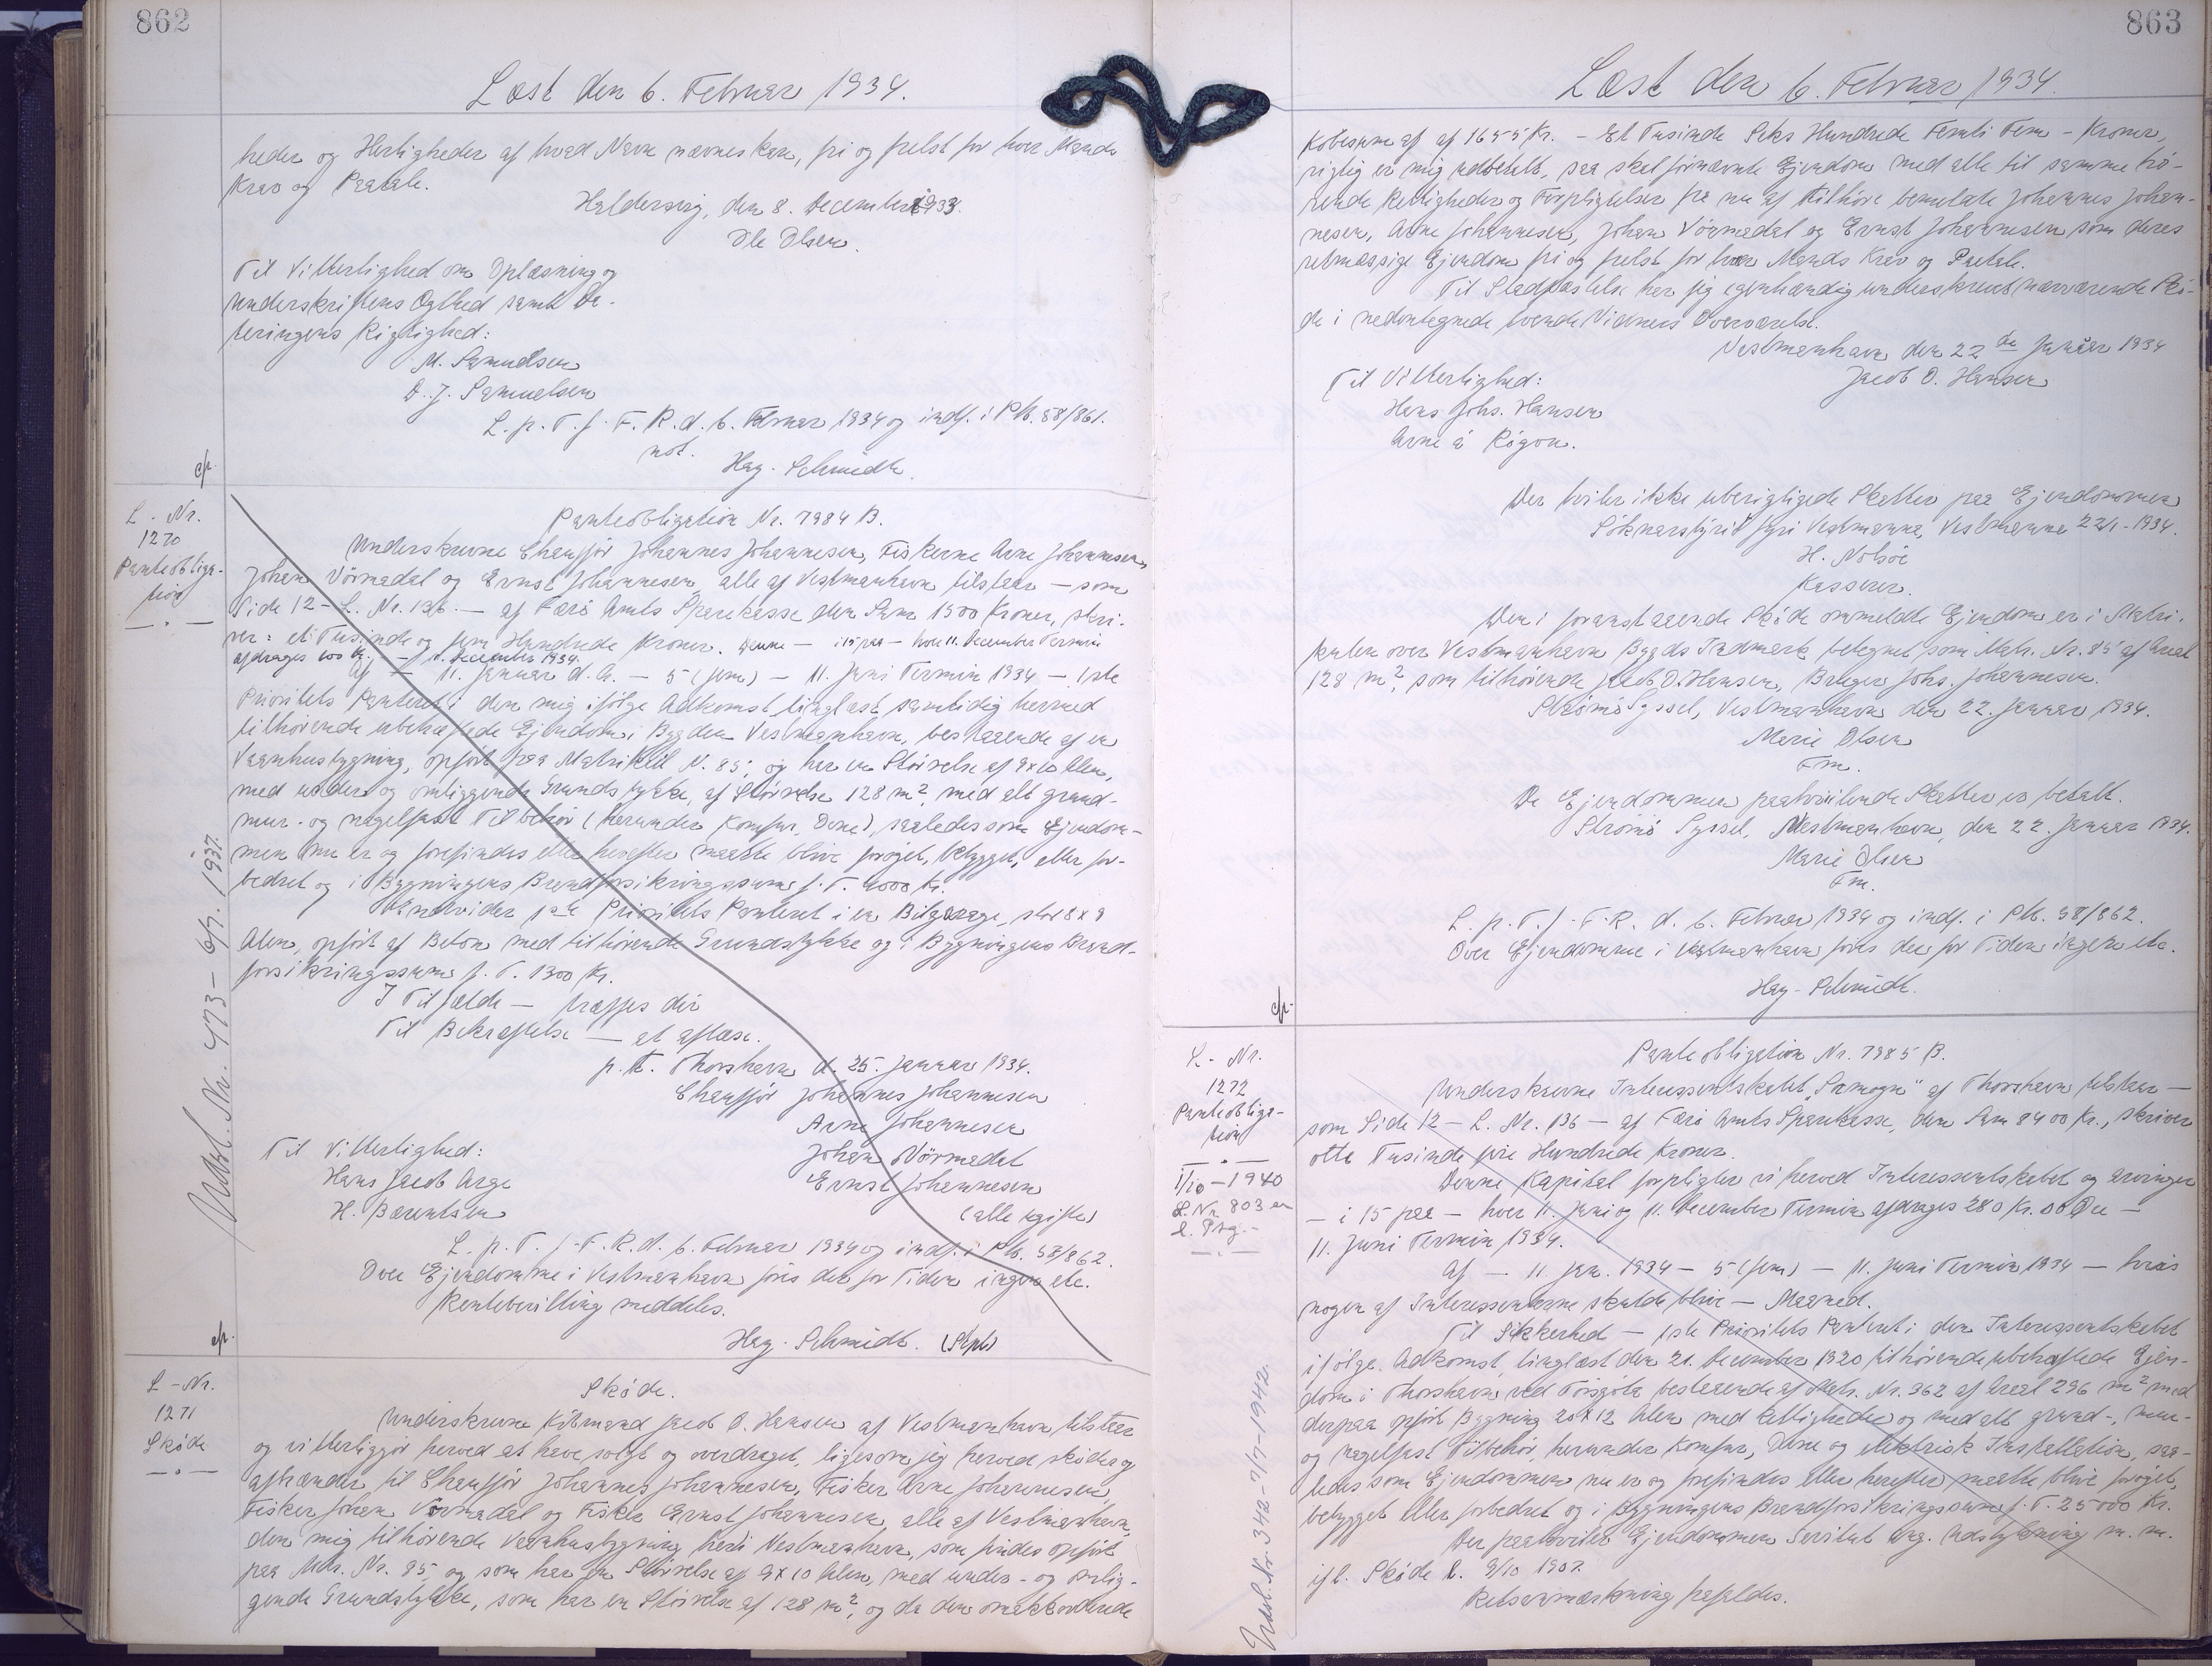 862
Læst den 6. Februar 1934.
heder og Herligheder af hvad Navn nævnes kan, fri og frelst for hver Mands
Krav og Paatale.
Haldersvig, den 8. December 1933.
Ole Olsen.
Til Vitterlighed om Oplæsning og
Underskriftens Ægthed samt Da-
teringens Rigtighed:
M. Samuelsen
D. J. Samuelsen
L. p. T. f. F. R. d. 6. Februar 1934 og indf. i Ptb. 58/861.
not.
Hag. Schmidt.
L. Nr.
1270
Panteobliga-
tion
Panteobligation Nr. 7984 B.
Underskrevne Chauffør Johannes Johannesen, Fiskerne Arne Johannesen,
Johan Vörmadal og Ernst Johannesen, alle af Vestmanhavn tilstaar – som
Side 12 – L. Nr. 136 – af Færö Amts Sparekasse den Sum 1500 Kroner, skri-
ver: et Tusinde og fem Hundrede Kroner. Denne – i 15 paa – hver 11. December Termin
afdrages 100 Kr. – 11. December 1934.
Af – 11. Januar d. A. – 5 (fem) – 11. Juni Termin 1934 – 1ste
Prioritets Panteret i den mig ifölge Adkomst tinglæst samtidig hermed
tilhörende ubehæftede Ejendom i Bygden Vestmanhavn, bestaaende af en
Vaanhusbygning, opfört paa Matrikel N. 85, og har en Störrelse af 9 x 10 Alen,
med under og omliggende Grundstykke, af Störrelse 128 m², med alt grund-
mur- og nagelfast Tilbehör (herunder Komfur, Ovne), saaledes som Ejendom-
men nu er og forefindes eller herefter maatte blive foröget, bebygget, eller for-
bedret og i Bygningens Brandforsikringssum f. T. 4000 Kr.
Endvidere 1ste Prioritets Panteret i en Bilgarage, stor 8 x 9
Alen, opfört af Beton med tilhörende Grundstykke og i Bygningens Brand-
forsikringssum f. T. 1300 Kr.
I Tilfælde – træffes dér
Til Bekræftelse – at aflæse.
p. t. Thorshavn d. 25. Januar 1934.
Chauffør Johannes Johannesen
Arne Johannesen
Johan Vörmadal
Ernst Johannesen
(alle ugifte)
Til Vitterlighed:
Hans Jacob Arge
H. Bærentsen
L. p. T. f. F. R. d. 6. Februar 1934 og indf. i Ptb. 58/862.
Over Ejendomme i Vestmanhavn föres der for Tiden ingen etc.
Rentebevilling meddeles.
Hag. Schmidt. (Stpl)
Udsl. Nr. 473 – 6/9. 1937.
L – Nr.
1271
Sköde
Sköde.
Underskrevne Købmand Jacob O. Hansen af Vestmanhavn tilstaar
og vitterliggör herved at have solgt og overdraget, ligesom jeg herved sköder og
afhænder til Chauffør Johannes Johannesen, Fisker Arne Johannesen,
Fisker Johan Vörmadal og Fisker Ernst Johannesen, alle af Vestmanhavn,
den mig tilhörende Vaanhusbygning her i Vestmanhavn, som findes opfört
paa Mtr. Nr. 85, og som har en Störrelse af 9 x 10 Alen, med under- og omlig-
gende Grundstykke, som har en Störrelse af 128 m², og da den omakkorderede
863
Læst den 6. Februar 1934.
Købesum af af 1655 Kr. – Et Tusinde Seks Hundrede Femti Fem – Kroner,
rigtig er mig udbetalt, saa skal fornævnte Ejendom med alle til samme hö-
rende Rettigheder og Forpligtelser fra nu af tilhöre bemeldte Johannes Johan-
nesen, Arne Johannesen, Johan Vörmadal og Ernst Johannesen som deres
retmæssige Ejendom fri og frelst for hver Mands Krav og Paatale.
Til Stadfæstelse har jeg egenhændig underskrevet nærværende Skö-
de i nedentegnede tvende Vidners Overværelse.
Vestmanhavn den 22 de Januar 1934
Jacob O. Hansen
Til Vitterlighed:
Hans Johs. Hansen
Arne á Rógvu.
Der hviler ikke uberigtigede Skatter paa Ejendommen
Sóknarstýrið fyri Vestmanna, Vestmanna 22/1 – 1934.
H. Nolsöe
Kasserer.
Den i foranstaaende Sköde ommeldte Ejendom er i Matri-
kulen over Vestmanhavn Bygds Indmark betegnet som Matr. Nr. 85 af Areal
128 m², som tilhörende Jacob O. Hansen, Bruger Johs. Johannesen.
Strömö Syssel, Vestmanhavn den 22. Januar 1934.
Marie Olsen
Fm.
De Ejendommen paahvilende Skatter er betalt.
Strömö Syssel, Vestmanhavn, den 22. Januar 1934.
Marie Olsen
Fm.
L. p. T. f. F. R. d. 6. Februar 1934 og indf. i Ptb. 58/862.
Over Ejendomme i Vestmanhavn föres der for Tiden ingen etc.
Hag. Schmidt.
L – Nr.
1272
Panteobliga-
tion
1/10 – 1940
L. Nr. 803 en
l. Ptg. –
Panteobligation Nr. 7985 B.
Underskrevne Interessentskabet "Sámogn" af Thorshavn tilstaar –
som Side 12 – L. Nr. 136 – af Færö Amts Sparekasse, den Sum 8400 Kr., skriver
otte Tusinde fire Hundrede Kroner.
Denne Kapital forpligter vi herved Interessentskabet og Arvinger
– i 15 paa – hver 11. Juni og 11. December Termin afdrages 280 Kr. 00 Øre –
11. Juni Termin 1934.
Af – 11. Jan. 1934 – 5 (fem) – 11. Juni Termin 1934 – hvis
nogen af Interessenterne skulde blive – Maaned.
Til Sikkerhed – 1ste Prioritets Panteret i den Interessentskabet
ifölge Adkomst, tinglæst den 21. December 1920 tilhörende ubehæftede Ejen-
dom i Thorshavn ved Tórsgöta bestaaende af Matr. Nr. 362 af Areal 296 m² med
derpaa opfört Bygning 20 x 12 Alen med Rettigheder og med alt grund-, mur-
og nagelfast Tilbehör, herunder Komfur, Ovne og elektrisk Installation, saa-
ledes som Ejendommen nu er og forefindes eller herefter maatte blive foröget,
bebygget eller forbedret og i Bygningens Brandforsikringssum f. T. 25000 Kr.
Der paahviler Ejendommen Servitut ang. Udstykning m. m.
ifl. Sköde l. 9/10 1907.
Retsanmærkning frafaldes.
Udsl. Nr 342 – 7/7 – 1942.